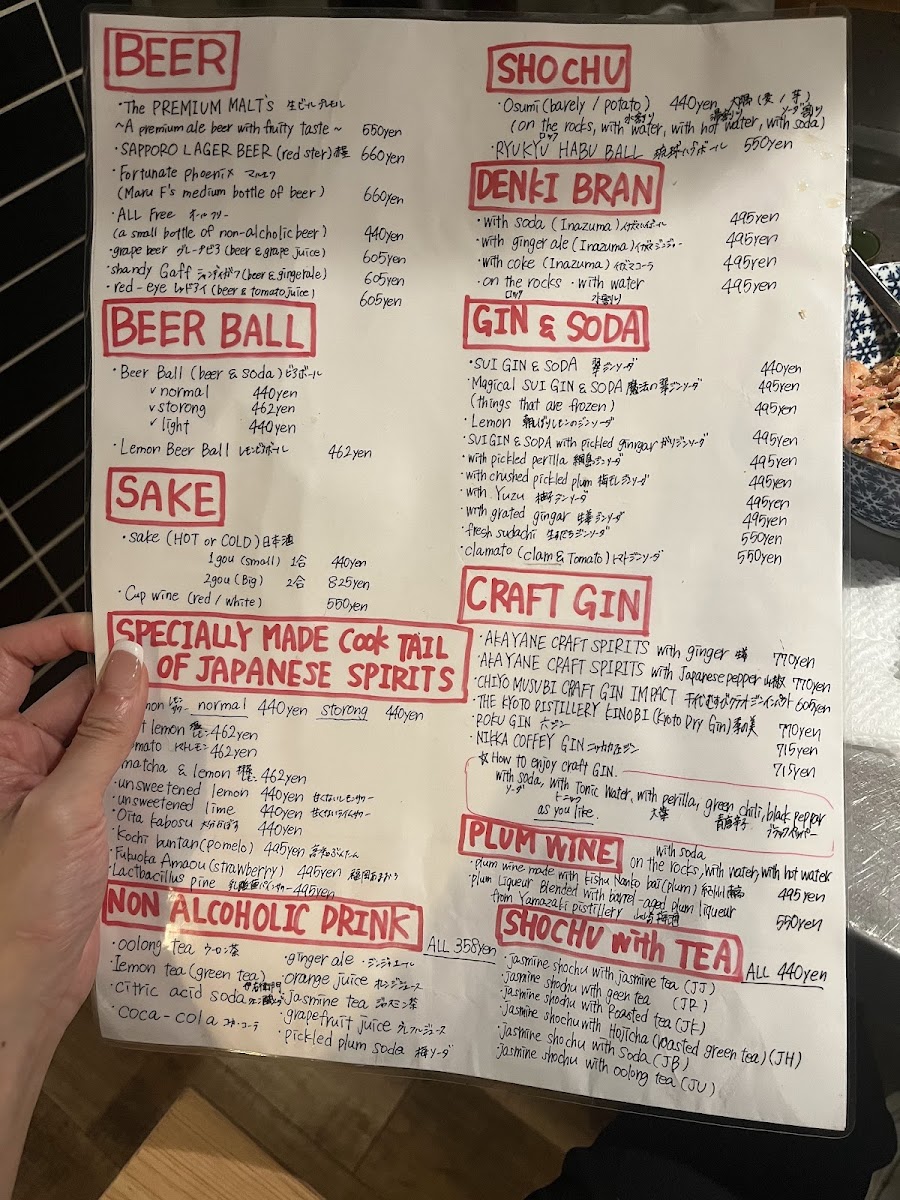 BEER
・The PREMIUM MALT's 生ビール モルツ
~A premium ale beer with fruity taste~ 550yen
・SAPPORO LAGER BEER (red ster) 660yen
・Fortunate Phoenix マルエフ
(Maru F's medium bottle of beer) 660yen
・ALL Free オールフリー
(a small bottle of non-alcholic beer) 440yen
・grape beer グレープビア (beer & grape juice) 605yen
・shandy Gaff シャンディガフ (beer & gingerale) 605yen
・red-eye レッドアイ (beer & tomato juice) 605yen
BEER BALL
・Beer Ball (beer & soda) ビアボール
✓normal 440yen
✓storong 462yen
✓light 440yen
・Lemon Beer Ball レモンビアボール 462yen
SAKE
・sake (HOT or COLD) 日本酒
1gou (small) 1合 440yen
2gou (Big) 2合 825yen
・Cup wine (red / white) 550yen
SPECIALLY MADE COOK TAIL
OF JAPANESE SPIRITS
mon normal 440yen storong 440yen
t lemon 462yen
mato トマトレモン 462yen
matcha & lemon 462yen
unsweetened lemon 440yen 甘くないレモンサワー
・unsweetened lime 440yen 甘くないライムサワー
・Oita kabosu 大分かぼす 440yen
・Kochi buntan (pomelo) 495yen 高知ぶんたん
・Fukuoka Amaou (strawberry) 495yen 福岡あまおう
・Lactbacillus pine 乳酸菌パインサワー 495yen
NON ALCOHOLIC DRINK ALL 358yen
・oolong tea ウーロン茶
・lemon tea (green tea)
・citric acid soda クエン酸
・coca-cola コカ・コーラ
・ginger ale ・ジンジャエール
・orange juice オレンジジュース
・jasmine tea ジャスミン茶
・grapefruit juice グレフルジュース
・pickled plum soda 梅ソーダ
SHOCHU
・Osumi (barely / potato) 440yen 大隅 (麦 / 芋)
水割り ソーダ割り
(on the rocks, with water, with hot water, with soda)
ロック
・RYUKYU HABU BALL 琉球ハブボール 550yen
DENKI BRAN
・with soda (Inazuma) イナズマハイボール 495yen
・with ginger ale (Inazuma) イナズマジンジャー 495yen
・with coke (Inazuma) イナズマコーラ 495yen
・on the rocks ・with water 495yen
ロック 水割り
GIN & SODA
・SUI GIN & SODA 翠ジンソーダ 440yen
・Magical SUI GIN & SODA 魔法の翠ジンソーダ 495yen
(things that are frozen) 495yen
・Lemon 朝しぼりレモンのジンソーダ
・SUIGIN & SODA with pickled gingar ガリジンソーダ 495yen
・with pickled perilla ジンソーダ 495yen
・with crushed pickled plum 梅干しジンソーダ 495yen
・with Yuzu 柚子ジンソーダ 495yen
・with grated gingar 生姜ジンソーダ 495yen
・fresh sudachi 生すだちジンソーダ 550yen
・clamato (clam & Tomato) トマトジンソーダ 550yen
CRAFT GIN
・AKAYANE CRAFT SPIRITS with ginger 生姜 770yen
・AKAYANE CRAFT SPIRITS with Japanese pepper 山椒 770yen
・CHIYO MUSUBI CRAFT GIN IMPACT 千代むすびクラフトジンインパクト 605yen
・THE KYOTO DISTILLERY KINOBI (Kyoto Dry Gin) 季の美 770yen
・ROKU GIN 六ジン 715yen
・NIKKA COFFEY GIN ニッカカフェジン 715yen
☆How to enjoy craft GIN.
with soda, with Tonic Water, with perilla, green chili, black pepper
ソーダ トニック 大葉 青唐辛子 ブラックペッパー
as you like.
PLUM WINE
with soda
on the rocks, with water, with hot water
・plum wine made with Kishu Nanko bai (plum) 495yen
・plum Liqueur Blended with barrel-aged plum liqueur
from Yamazaki distillery 山崎梅酒 550yen
SHOCHU with TEA ALL 440yen
・jasmine shochu with jasmine tea (JJ)
・jasmine shochu with geen tea (JR)
・jasmine shochu with Roasted tea (JK)
・jasmine shochu with Hojicha (roasted green tea) (JH)
・jasmine shochu with Soda (JB)
・jasmine shochu with oolong tea (JU)